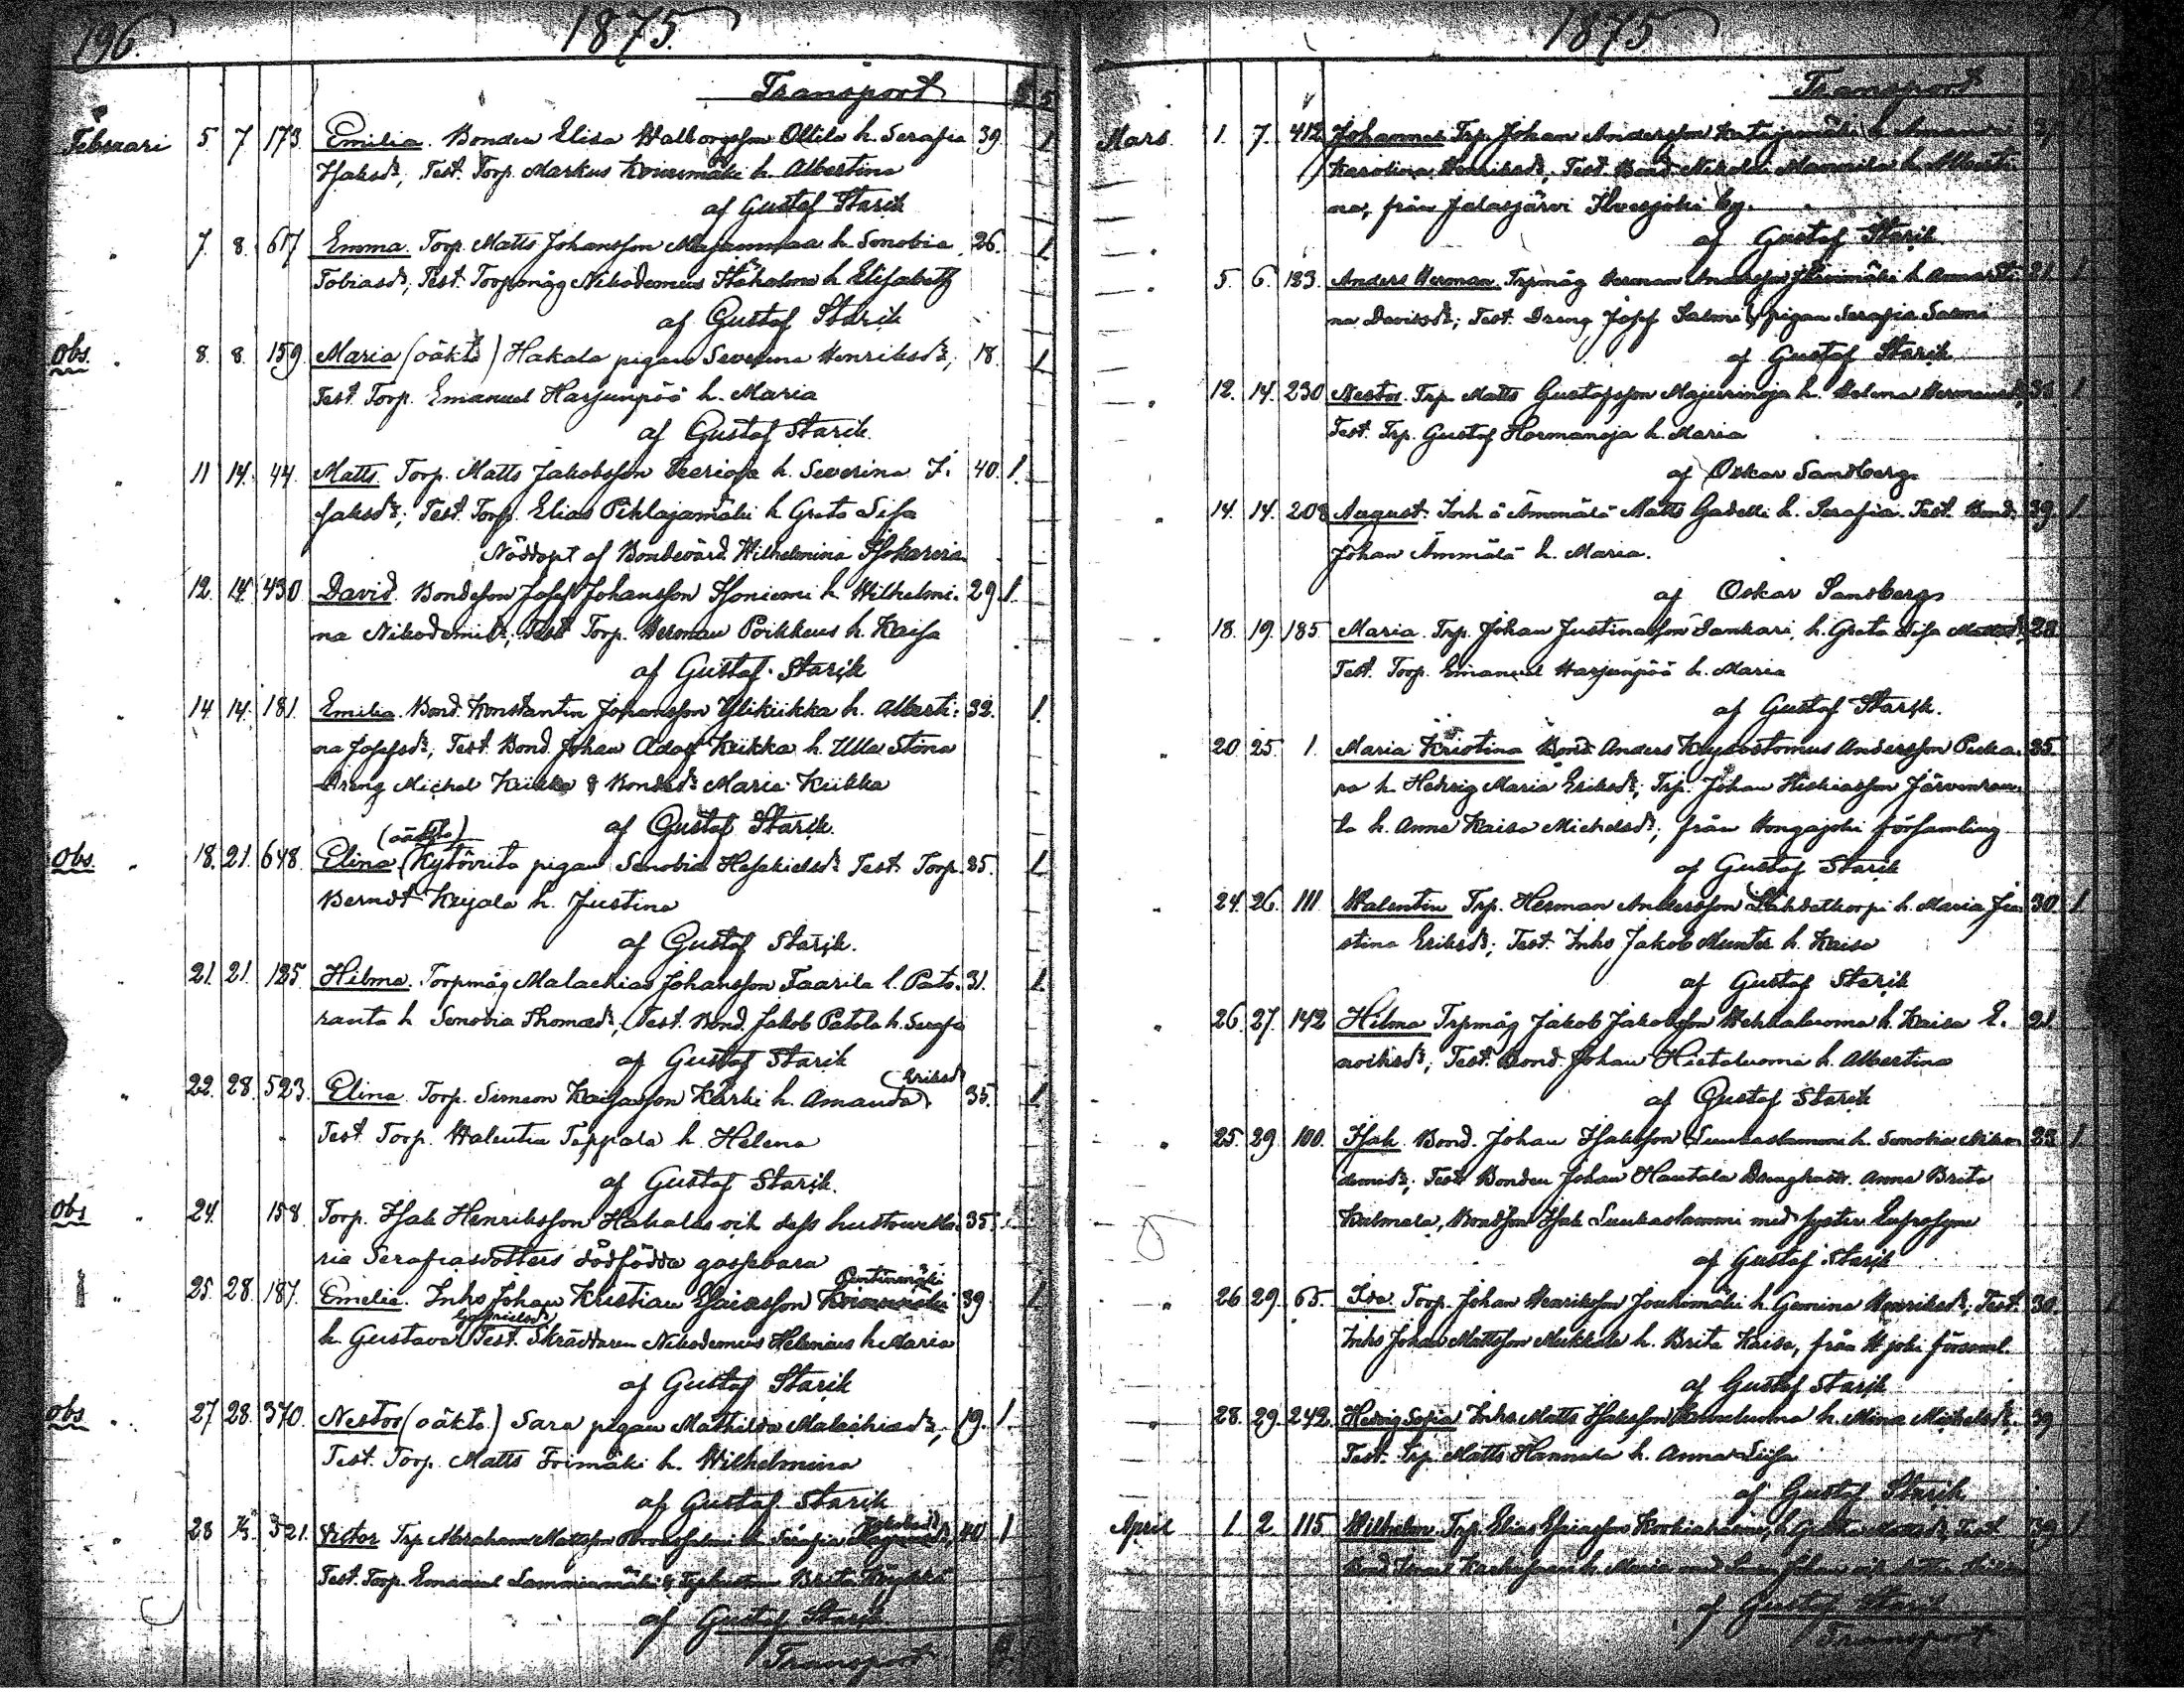 196.
1875.
Transport
Februari 5 7 173 Emilia. Bonden Elisa Walborgsson Ollila h. Serafia 39 1
Isaksdr, Test. Torp. Markus Koivumäki h. Albertina
af Gustaf Starik
7. 8. 617 Emma. Torp. Matts Johansson h. Senobia 26. 1
Tobiasdr, Test. Torpmåg Nikodemus h. Elisabeth
af Gustaf Starik
Obs. 8. 8. 159. Maria (oäkta) Hakala pigan Severina Henriksdr, 18. 1
Test. Torp. Emanuel Harjunpää h. Maria
af Gustaf Starik.
11 14. 44. Matts. Torp. Matts Jakobsson h. Severina I. 40. 1.
saksdr; Test. Torp. Elias Pihlajamäki h. Greta Lisa
Nöddöpt af Bondevärd. Wilhelmina
12. 14. 430 David. Bondeson Josef Johansson Isoniemi h. Wilhelmi. 29. 1.
na Nikodemidr, Test Torp. Herman Poikkeus h. Kaisa
af Gustaf Starik
14 14. 181. Emilia. Bond. Konstantin Johansson Ylikiikka h. Alberti: 32. 1.
na Josefsdr, Test. Bond. Johan Adolf Kiikka h. Ulla Stina
Dreng Michel Kiikka & Bondedr Maria Kiikka
af Gustaf Starik.
(oäkta)
Obs. 18. 21. 648. Elina (Kytöviita pigan Senobia Hesekielsdr Test. Torp. 35. 1.
Berndt Keijala h. Justina
af Gustaf Starik.
21. 21. 125 Hilma. Torpmåg Malachias Johansson Taarila l. Pato. 31. 1.
ranta h Senobia Thomasdr, Test. Bond. Jakob Patola h. Serafia
af Gustaf Starik
Eriksdr
22. 28. 523. Elina. Torp. Simeon Kaisasson Karhi h. Amanda 35. 1.
Test. Torp. Walentin Teppala h. Helena
af Gustaf Starik.
Obs 24. 158 Torp. Isak Henriksson Hakalas och dess hustru Ma. 35.
ria Serafiasdotters dödfödda gossebarn
Pentinmäki
25. 28. 187. Emelie. Inhs Johan Kristian Esaiasson 39. 1
Gabrielsdr
h. Gustava Test. Skräddaren Nikodemus Helenius h. Maria
af Gustaf Starik
Obs 27 28. 370. Nestor (oäkta) Sara pigan Mathilda Malachiasdr, 19. 1.
Test. Torp. Matts h. Wilhelmina
af Gustaf Starik
28 521. Victor Trp Abraham Mattsson h. Serafia 40. 1
Test. Torp. Emanuel Lamminmäki & Brita
af Gustaf Starik
Transport
1875
Transport
Mars. 1. 7. 412 Johannes Trp. Johan Andersson Katajamäki h. Amanda
Karolina Henriksdr, Test. Bond. Nikolai Mannila h. Alberti.
na, från Jalasjärvi Ilvesjoki by.
af Gustaf Starik
5. 6. 183. Anders Herman. Trpmåg Herman Andersson h. Anna Sti: 21. 1
na Davidsdr; Test. Dreng Josef Salmi & pigan Serafia Salmi
af Gustaf Starik
12. 14. 230 Nestor. Trp. Matts Gustafsson h. Helena Hermansdr, 36 1
Test. Trp. Gustaf Hormanoja h. Maria
af Oskar Sandberg
14. 14. 208 August. Inh å Ämmälä Matts Gadelli h. Serafia. Test. Bond. 39. 1
Johan Ämmälä h. Maria.
af Oskar Sandberg
18. 19. 185. Maria. Trp. Johan Justinasson h. Greta Lisa 28
Test. Torp. Emanuel Harjunpää h. Maria
af Gustaf Starik.
20 25 1. Maria Kristina Bond. Anders Krysostomus Andersson 35.
h. Hedvig Maria Eriksdr; Trp. Johan Heskiasson
la h. Anna Kaisa Michelsdr; från Hongajoki församling
af Gustaf Starik
24. 26. 111 Walentin Trp. Herman Andersson Lähdetkorpi h. Maria Ju. 30. 1
stina Eriksdr; Test. Inhs Jakob Munter h. Kaisa
af Gustaf Starik
26. 27. 142 Hilma Trpmåg Jakob Jakobsson h. Kaisa E. 21.
noiksdr, Test. Bond. Johan Hietaluoma h. Albertina
af Gustaf Starik
25. 29. 100. Isak. Bond. Johan Isaksson Luukaslammi h. Senobia Niko. 23. 1
demidr; Test Bonden Johan Hautala Drenghustr. Anna Brita
Kulmala, Bondson Isak Luukaslammi med syster Eufrosyne
af Gustaf Starik
26. 29. 65. Ida. Torp. Johan Henriksson Joukimäki h. Gemina Henriksdr; Test. 30.
Inhs Johan Mattsson Mukkala h. Brita Kaisa, från församl.
af Gustaf Starik
28. 29. 242. Hedvig Sofia Inhs Matts Isaksson h. Mina Michelsdr, 39
Test. Trp. Matts Hannula h. Anna Liisa
af Gustaf Starik
April 1. 2. 115 Wilhelm. Trp. Elias Esaiasson h. Test. 39. 1
Bond. h. Maria
af Gustaf Starik
Transport